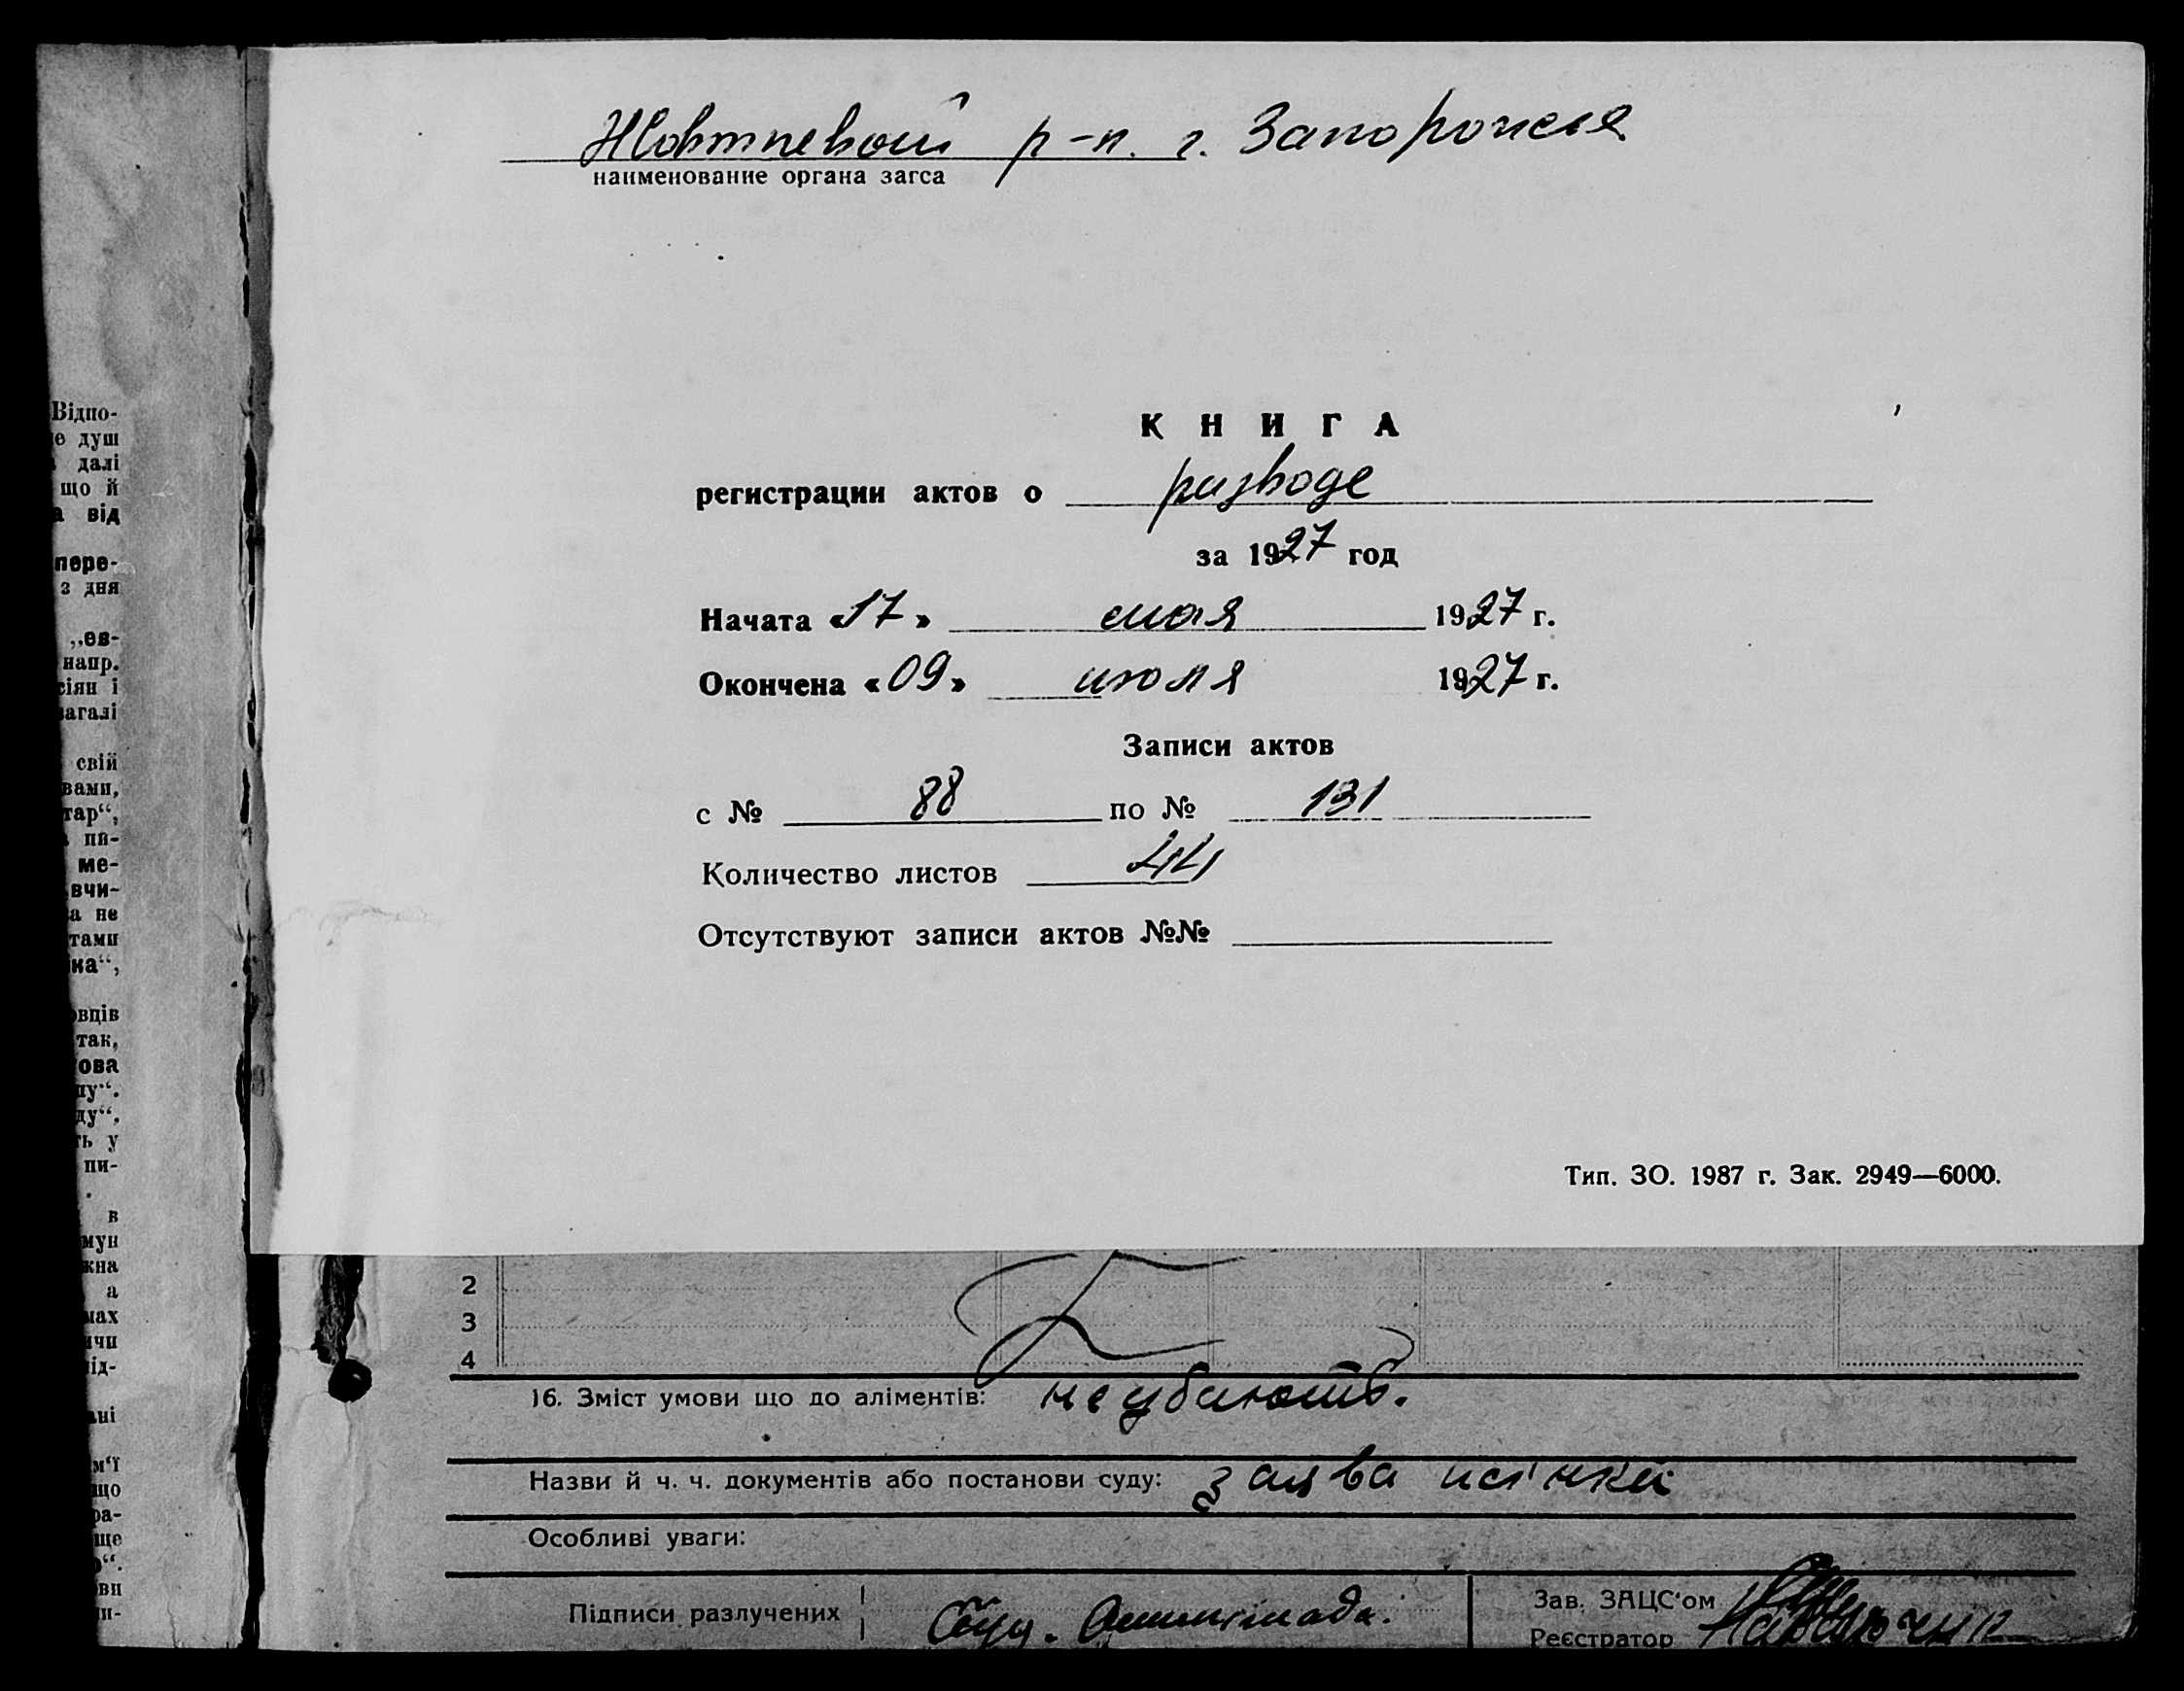 Жовтневый р-н. г. Запорожье
наименование органа загса
КНИГА
регистрации актов о разводе
за 1927 год
Начата «17» мая 1927 г.
Окончена «09» июля 1927 г.
Записи актов
с № 88 по № 131
Количество листов 44
Отсутствуют записи актов №№
Тип. ЗО. 1987 г. Зак. 2949—6000.
Відпо-
е душ
далі
що й
а від
пере-
з дня
„ев-
напр.
сіян і
загалі
свій
вами,
тар“,
пи-
ме-
вчи-
а не
тами
ка“,
овців
так,
ова
пу“.
ду“,
ть у
пи-
.
в
мун
жна
а
мах
ичи
від-
ані
м'ї
що
ра-
ще
о“.
ови
2
3
4
16. Зміст умови що до аліментів:
Назви й ч. ч. документів або постанови суду: заява
Особливі уваги:
Підписи разлучених
Зав. ЗАЦС'ом
Реєстратор